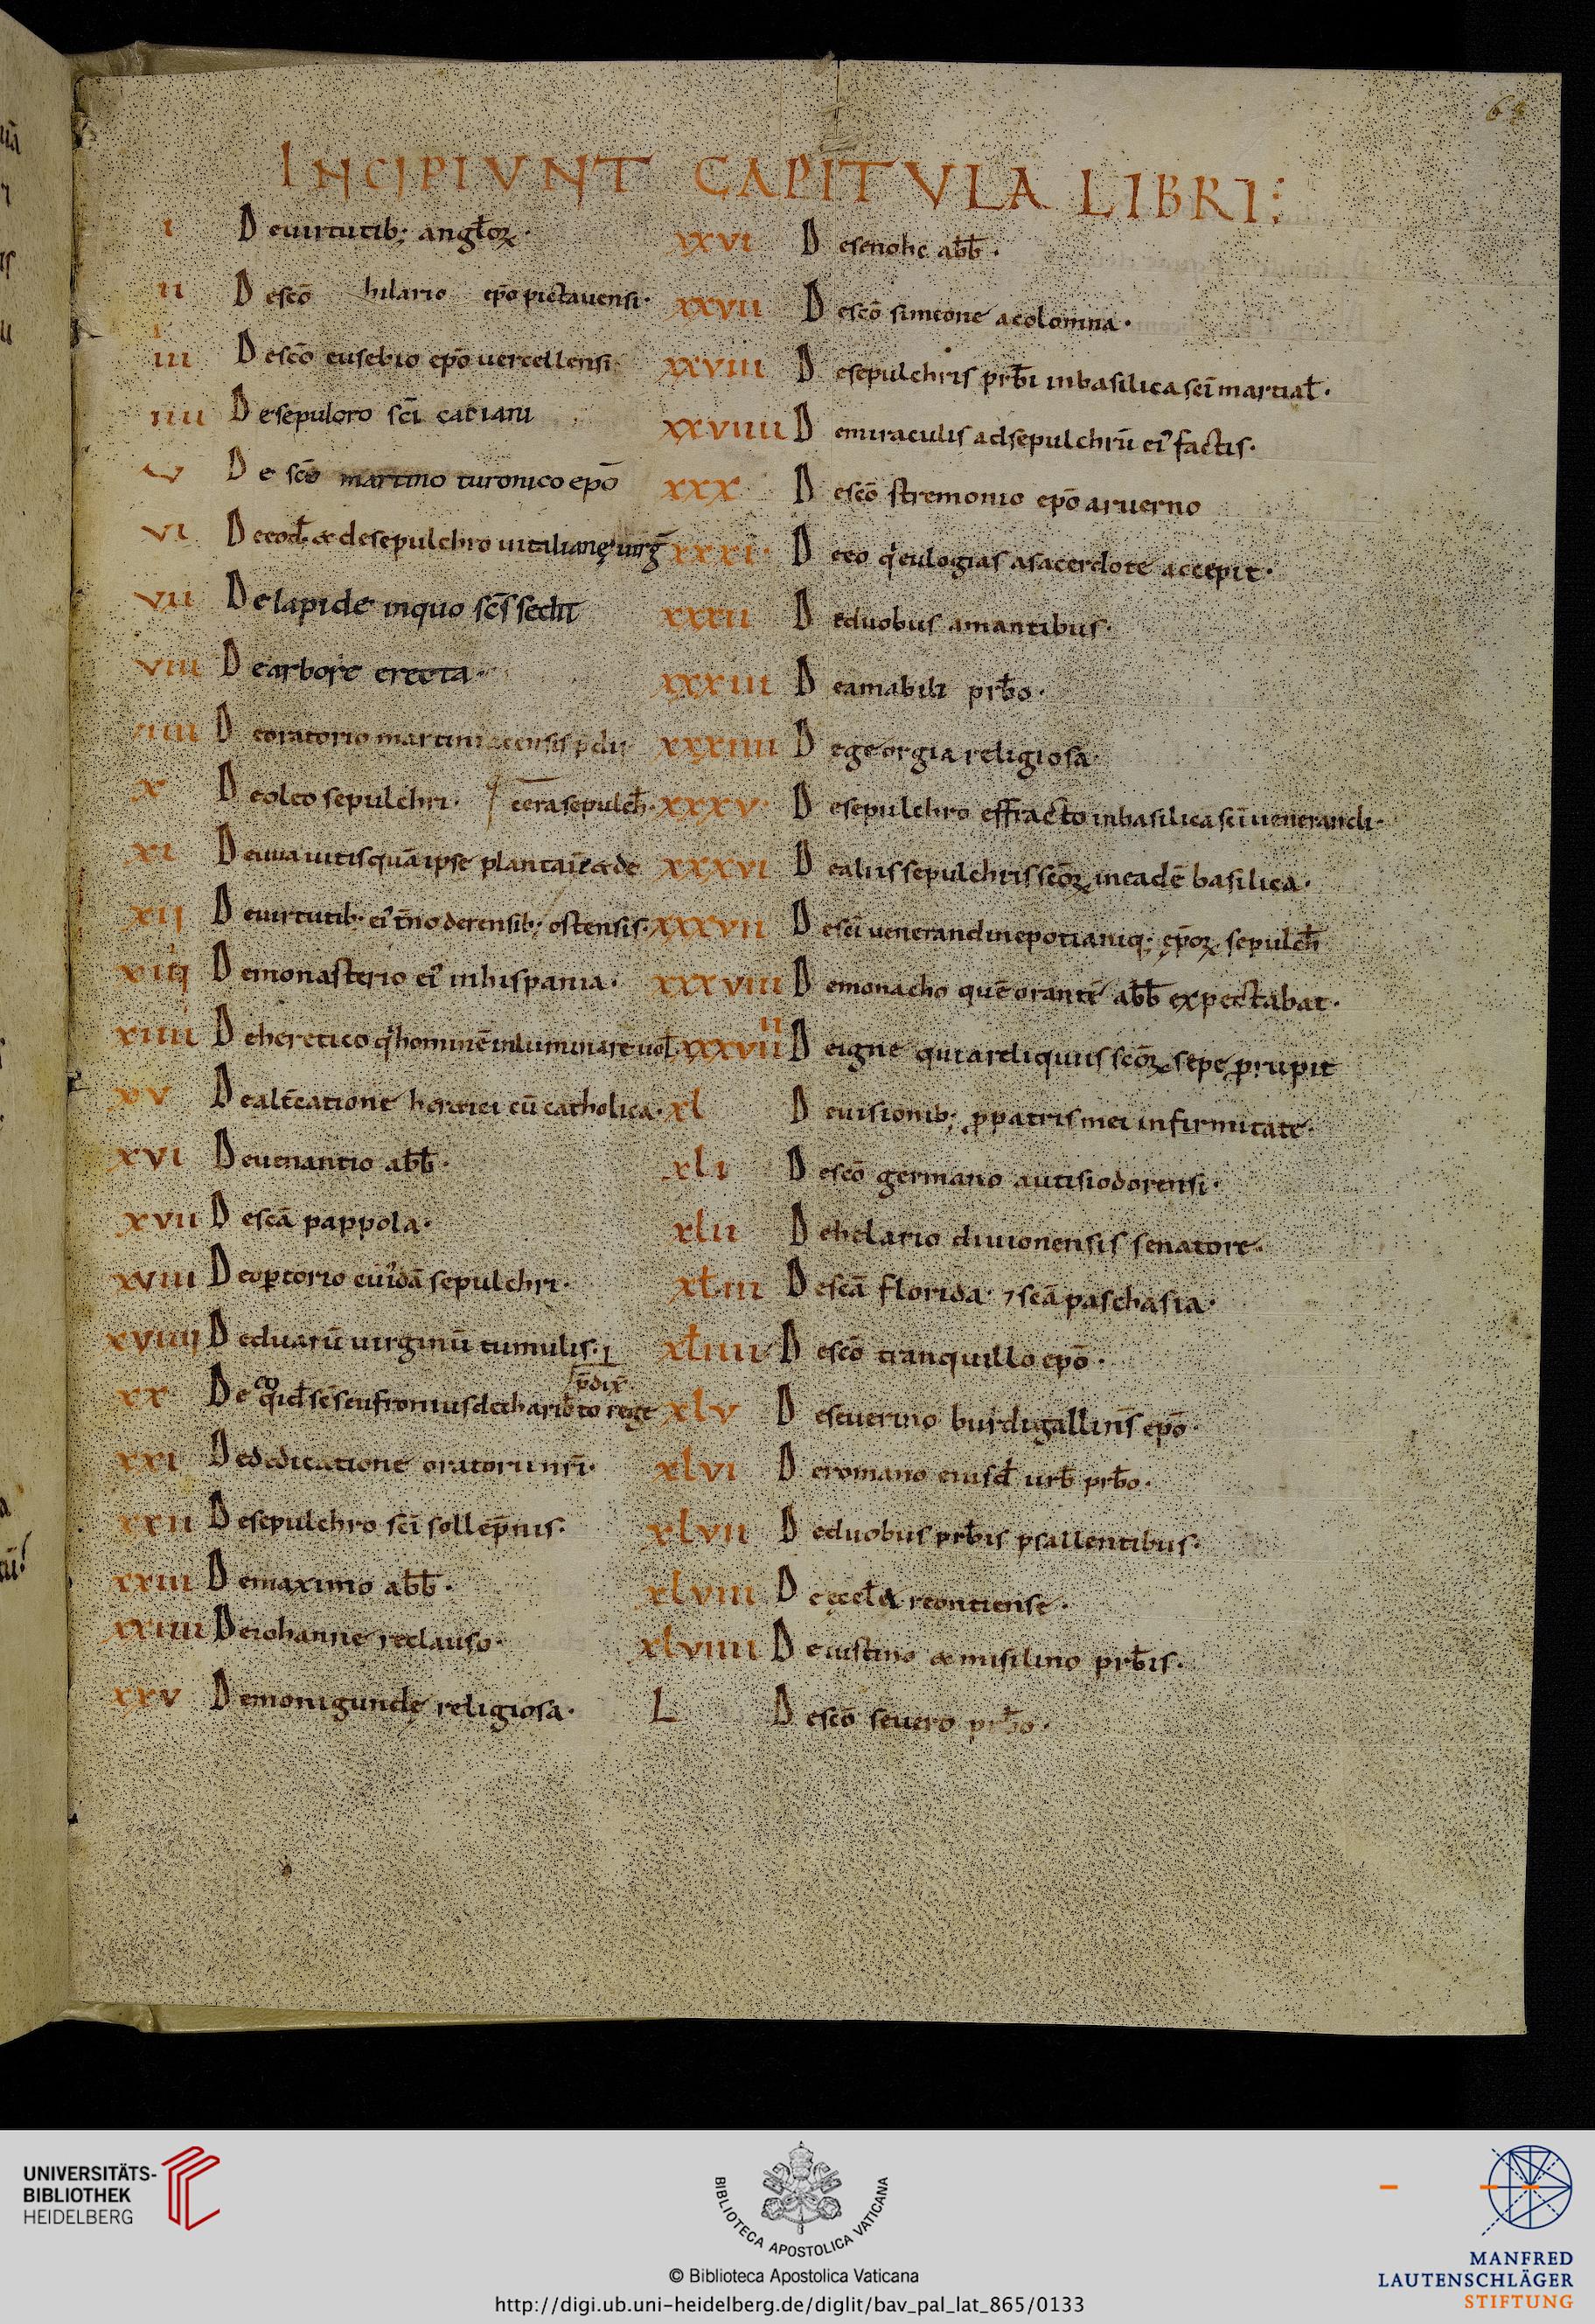 68
INCIPIVNT CAPITVLA LIBRI:
I Deuirtutib; angloꝝ·
II Descō hilario ep̄o pictauensi·
III Descō eusebio ep̄o uercellensi
IIII Desepulcro sc̄i catiani
V De sc̄o martino turonico ep̄o
VI Deeod· & desepulchro uitalianę uirg̅
VII Delapide inquo sc̄s sedit
VIII Dearbore erecta·
VIIII Deoratorio martiniacensis
X Deoleo sepulchri·
XI Deuua uitis quā ipse plantauit & de cera sepulch̅·
XII Deuirtutib· ei᾽ t̄no derensib; ostensis·
XIII Demonasterio ei᾽ inhispania·
XIIII Deheretico q̇ hominē inluminare uol̄·
XV Dealt̄catione heretici cū catholica·
XVI Deuenantio abb̄·
XVII Descā pappola·
XVIII Deoꝑtorio cuiu᾽dā sepulchri·
XVIIII Deduarū uirginū tumulis·
XX De eo q̇d sc̄s eufronius decharib̄to rege p̄dix̄·
XXI Dededicatione oratorii nr̄i·
XXII Desepulchro sc̄i sollēpnis·
XXIII Demaximo abb̄·
XXIIII Deiohanne reclauso·
XXV Demonigundę religiosa·
XXVI Desenohe abb̄·
XXVII Descō simeone acolomna·
XXVIII Desepulchris prb̄i inbasilica sc̄i martial̄·
XXVIIII Demiraculis adsepulchrū ei᾽ factis·
XXX Descō stremonio ep̄o aruerno
XXXI· Deeo q̇ eulogias asacerdote accepit·
XXXII Deduobus amantibus·
XXXIII Deamabili prb̄o·
XXXIIII Degeorgia religiosa·
XXXV· Desepulchro effracto inbasilica sc̄i uenerandi·
XXXVI Dealiis sepulchris sc̄oꝝ ineadē basilica·
XXXVII Desc̄i uenerandi nepotianiq; ep̄oꝝ sepulch̅
XXXVIII Demonacho quē orantē abb̄ expectabat·
XXXVIIII Deigne qui areliquiis sc̄oꝝ sepe prupit
XL Deuisionib; ꝓ patris mei infirmitate·
XLI Descō germano autisiodorensi·
XLII Dehelario diuionensis senatore·
XLIII Descā florida· ⁊ scā paschasia·
XLIIII Descō tranquillo ep̄o·
XLV Deseuerino burdigallins̄ ep̄o·
XLVI Deromano eiusd̄ urb̄ prb̄o·
XLVII Deduobus prb̄is psallentibus·
XLVIII De ęccl̄a reontiense·
XLVIIII Deiustino & misilino prb̄is·
L Descō seuero prb̄o·
UNIVERSITÄTS-
BIBLIOTHEK
HEIDELBERG
BIBLIOTECA APOSTOLICA VATICANA
© Biblioteca Apostolica Vaticana
http://digi.ub.uni-heidelberg.de/diglit/bav_pal_lat_865/0133
MANFRED
LAUTENSCHLÄGER
STIFTUNG